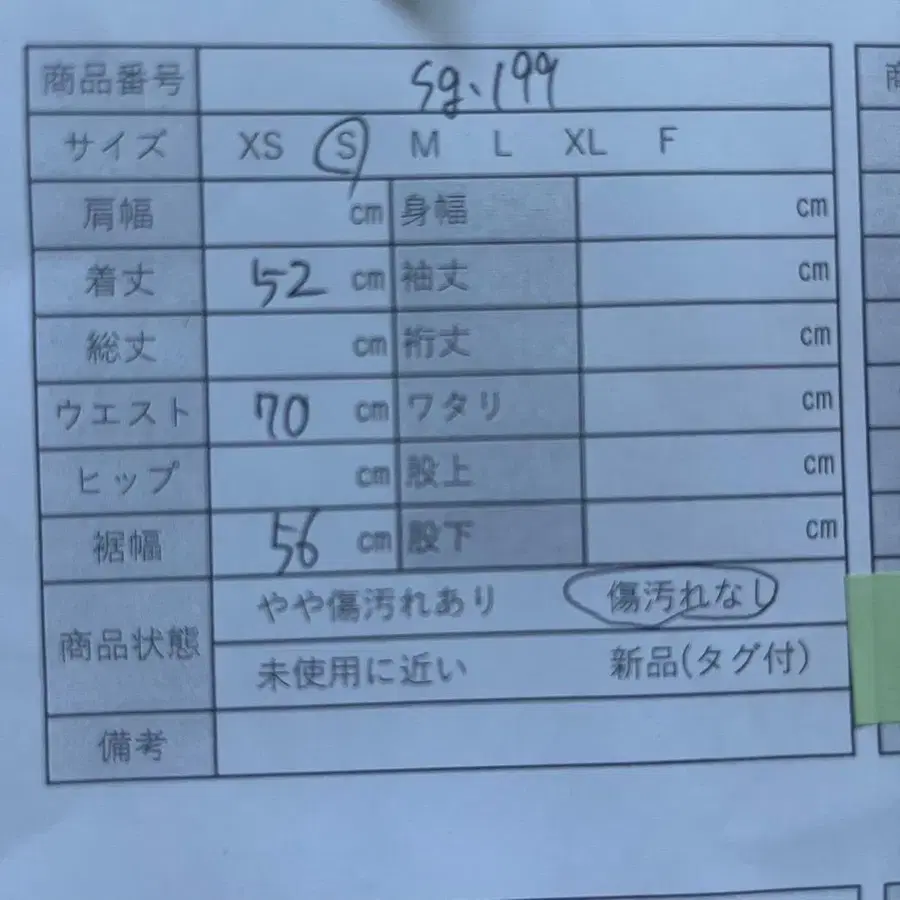 商品番号 sg.199
サイズ XS S M L XL F
肩幅 cm 身幅 cm
着丈 52 cm 袖丈 cm
総丈 cm 裄丈 cm
ウエスト 70 cm ワタリ cm
ヒップ cm 股上 cm
裾幅 56 cm 股下 cm
商品状態 やや傷汚れあり 傷汚れなし
未使用に近い 新品(タグ付)
備考